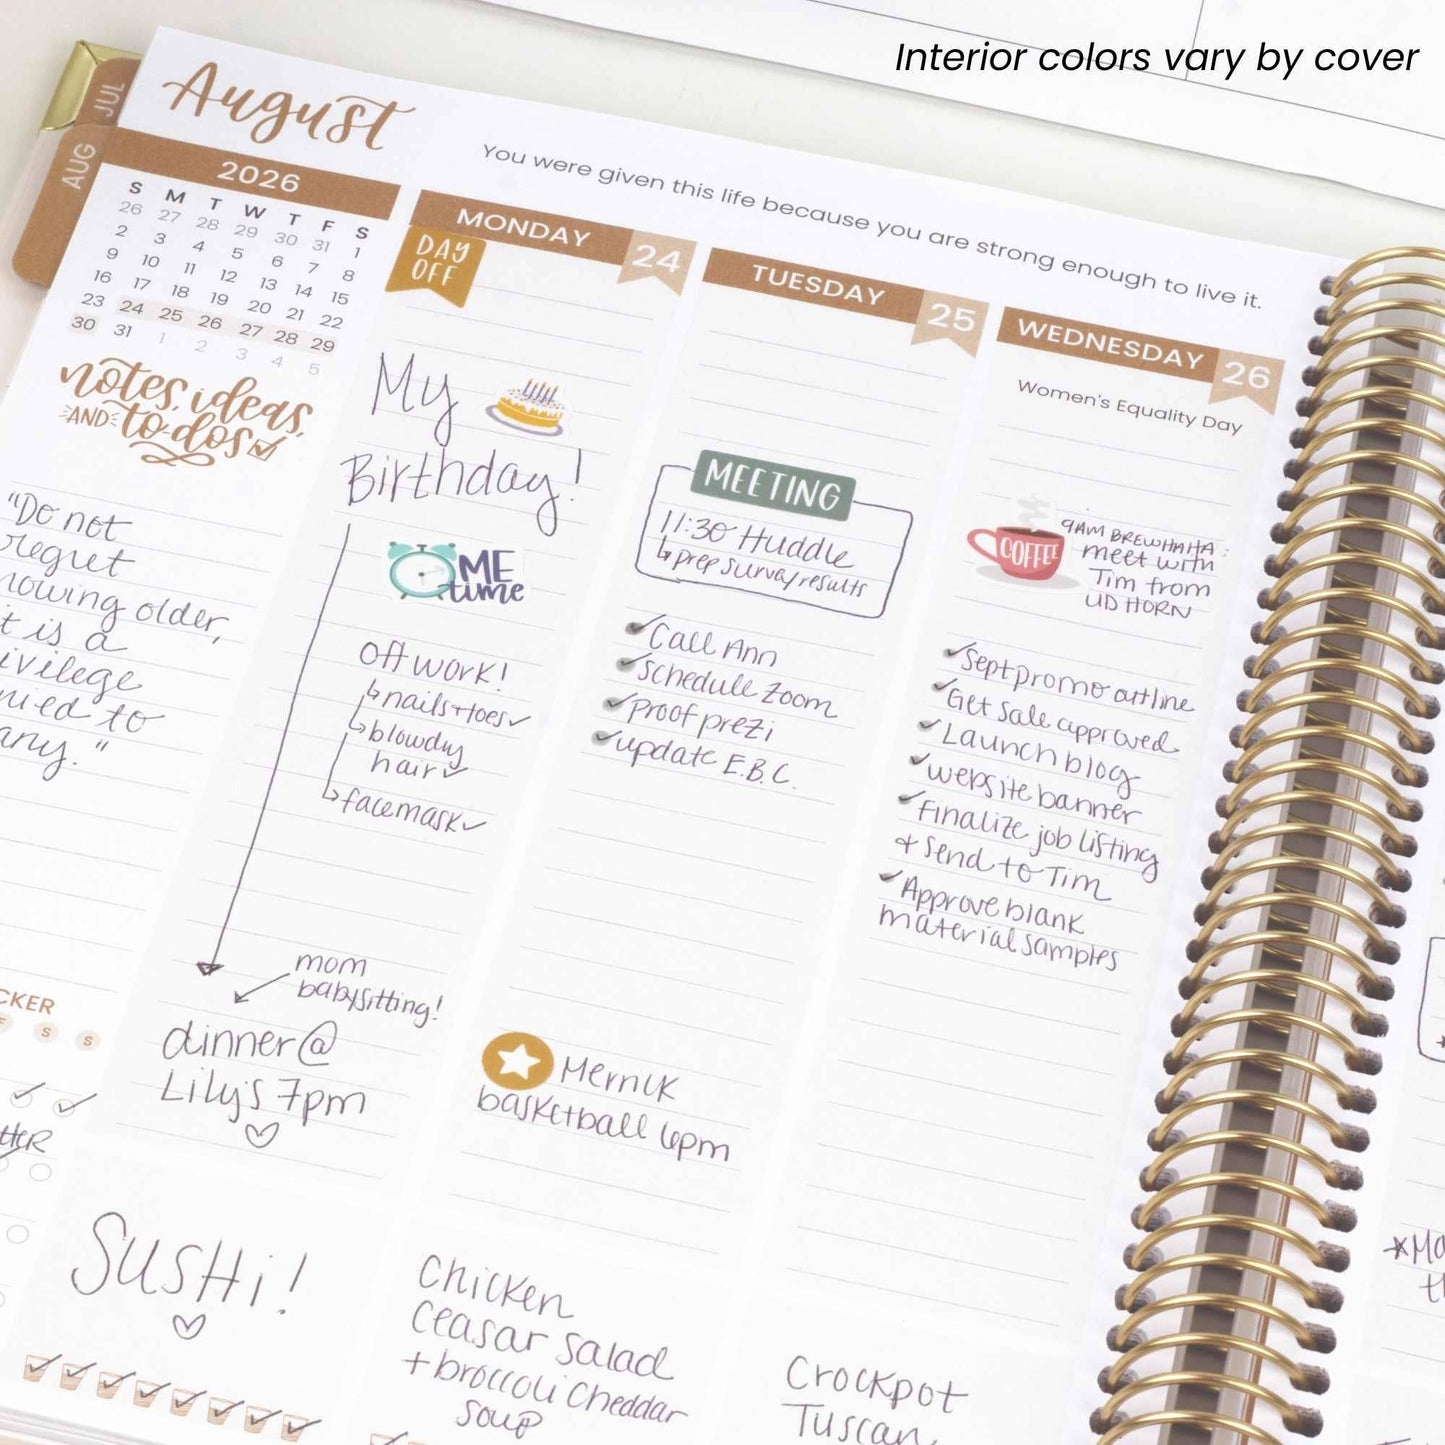 Interior colors vary by cover
JUL
AUG
August
You were given this life because you are strong enough to live it.
2026
S M T W T F S
26 27 28 29 30 31 1
2 3 4 5 6 7 8
9 10 11 12 13 14 15
16 17 18 19 20 21 22
23 24 25 26 27 28 29
30 31 1 2 3 4 5
notes, ideas,
AND to-dos
"Do not
regret
growing older,
it is a
privilege
denied to
many."
CKER
F S S
MONDAY 24
DAY
OFF
My
Birthday!
ME
time
Off work!
nails + toes
blowdry
hair
facemask
mom
babysitting!
dinner @
Lily's 7pm
SUSHi!
TUESDAY 25
MEETING
11:30 Huddle
prep survey results
Call Ann
Schedule Zoom
Proof prezi
update E.B.C.
Merrick
basketball 6pm
Chicken
Ceasar salad
+ broccoli Cheddar
soup
WEDNESDAY 26
Women's Equality Day
COFFEE
9AM BREWHAHA:
meet with
Tim from
UD HORN
Sept promo outline
Get sale approved
Launch blog
website banner
Finalize job listing
+ send to Tim
Approve blank
material samples
Crockpot
Tuscan